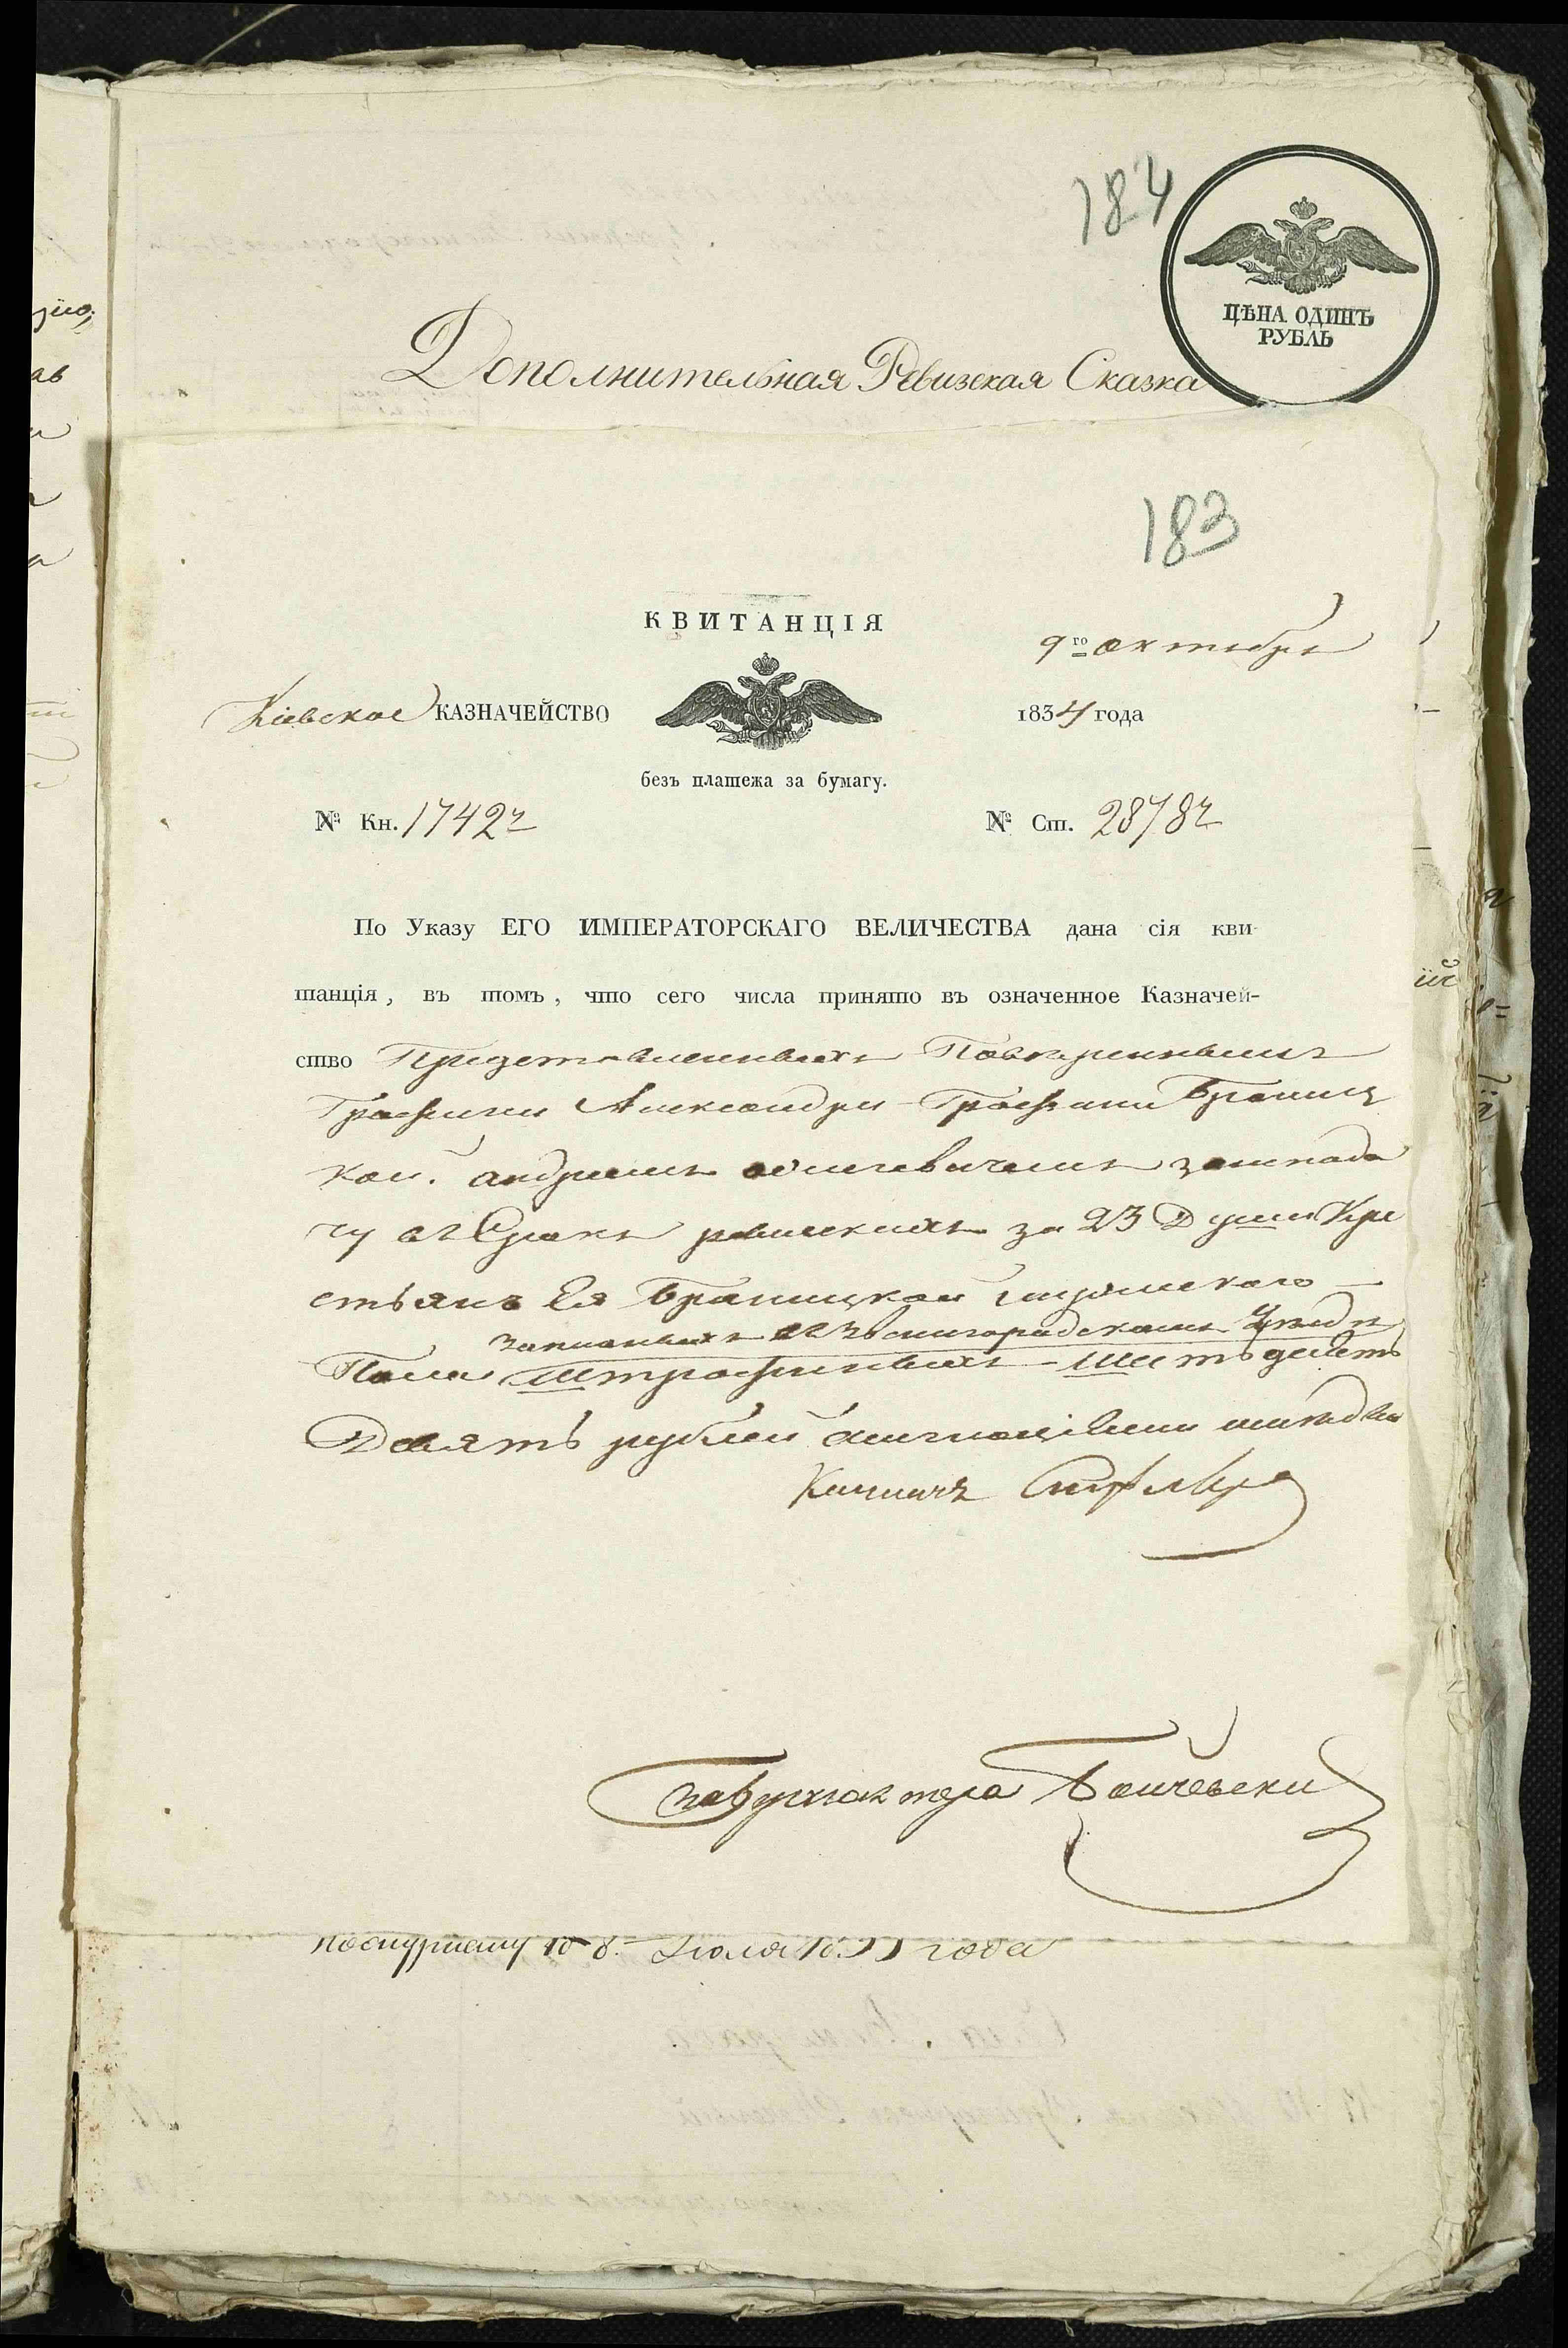 184
ЦѢНА ОДИНЪ
РУБЛЬ
Дополнительная Ревизская Сказка
183
КВИТАНЦІЯ
9го октября
Кіевское КАЗНАЧЕЙСТВО
1834 года
безъ платежа за бумагу.
№ Кн. 1742й
№ Ст. 28782
По Указу ЕГО ИМПЕРАТОРСКАГО ВЕЛИЧЕСТВА дана сія кви-
танція, въ томъ, что сего числа принято въ означенное Казначей-
ство Представленныхъ Повѣреннымъ
Графини Александры Графини Браниц
кой. андреемъ занеподо
чу въ Срокъ ревизскихъ за 23 Души Кре
стьянъ Ея Браницкой мужескаго
записанныхъ въ Звенигородскомъ Уѣзде
Пола Штрафныхъ - Шестьдесятъ
Девять рублей
забухгалтера
года